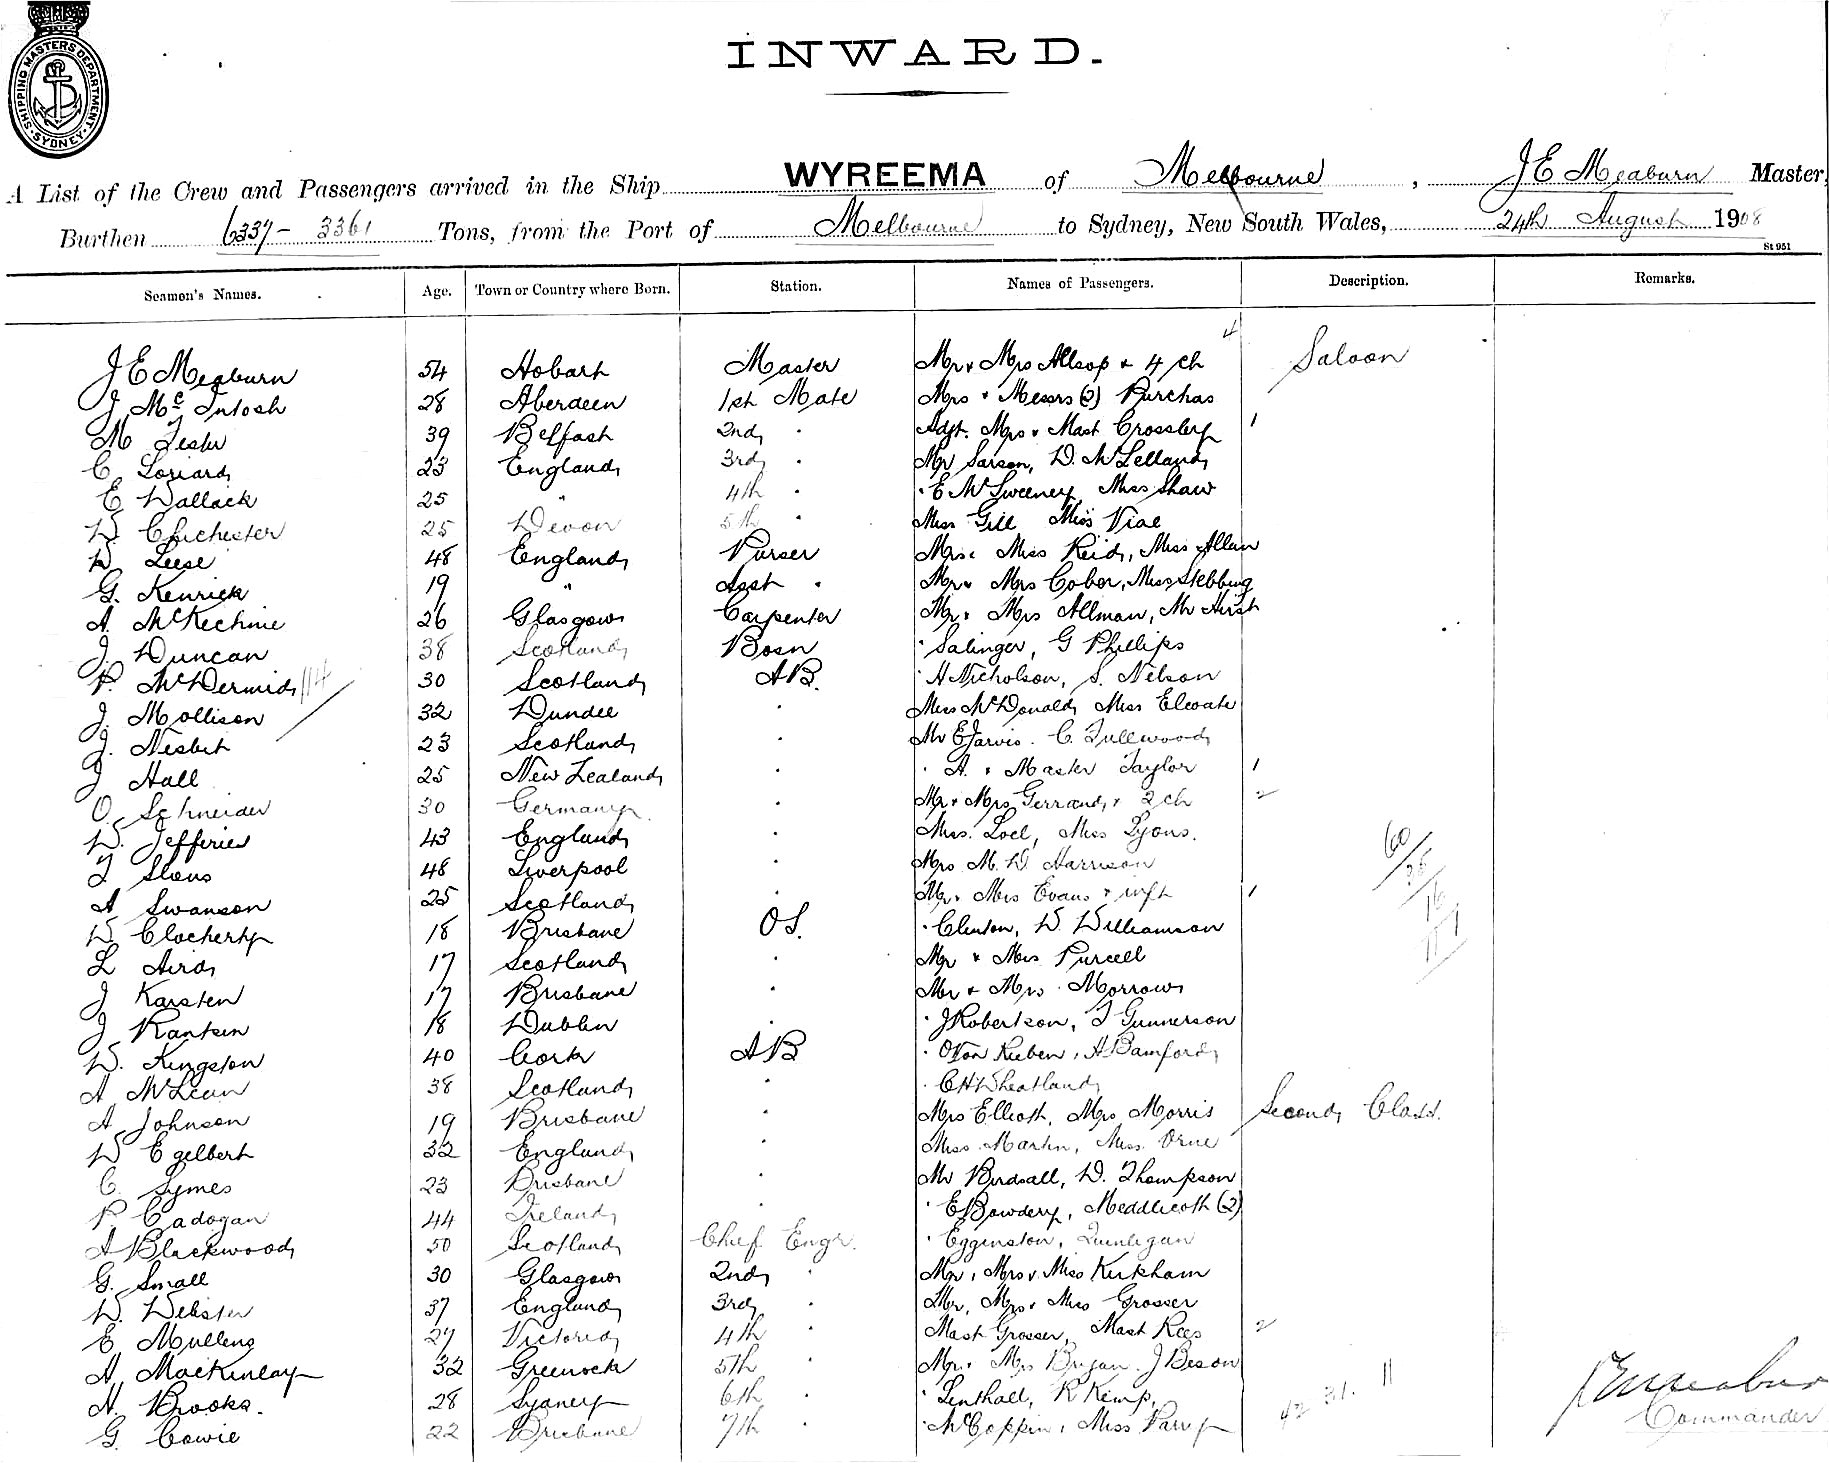 SHIPPING MASTERS DEPARTMENT. SYDNEY.
INWARD.
A List of the Crew and Passengers arrived in the Ship WYREEMA of Melbourne, J E Meaburn Master,
Burthen 6337 - 3361 Tons, from the Port of Melbourne to Sydney, New South Wales, 24th August 1908
St 951
Seamen's Names. Age. Town or Country where Born. Station. Names of Passengers. Description. Remarks.
4
J E Meaburn 54 Hobart Master Mr & Mrs Allsop & 4 ch Saloon
J McIntosh 28 Aberdeen 1st Mate Mrs & Messrs (2) Purchas
M Lester 39 Belfast 2nd " Adjt. Mrs & Mast Crossley 1
C Loriard 23 England 3rd " Mr Sarson, D. McLelland
E Wallack 25 " 4th " " E McSweeney, Miss Shaw
W. Chichester 25 Devon 5th " Miss Gill Miss Vial
W Leese 48 England Purser Mrs & Miss Reid, Miss Allen
G. Kenrick 19 " Asst " Mr & Mrs Cober, Miss Stebbing
A McKechnie 26 Glasgow Carpenter Mr & Mrs Allman, Mr Hirst
J. Duncan 38 Scotland Bosn " Salinger, G Phillips
P. McDermid 114 30 Scotland AB. " H Nicholson, S. Nelson
J. Mollison 32 Dundee " Miss McDonald, Miss Elcoate
J. Nesbit 23 Scotland " Mr E Jarvis. C. Fullwood
J Hall 25 New Zealand " " A. & Master Taylor 1
O. Schneider 30 Germany " Mr & Mrs Gerrand, & 2 ch 2
W. Jefferies 43 England " Miss. Loel, Miss Lyons. 60
T Slous 48 Liverpool " Mrs M. W Harrison
A Swanson 25 Scotland " Mr & Mrs Evans & inft 1
W Clocherty 18 Brisbane OS. " Clinton, W Williamson
L Aird 17 Scotland " Mr & Mrs Purcell
J Karsten 17 Brisbane " Mr & Mrs Morrow
J Rankin 18 Dublin " " J Robertson, T Gunnerson
W. Kingston 40 Cork AB " O Von Rieben, H Bamford
A McLean 38 Scotland " " C H Wheatland
A Johnson 19 Brisbane " Mrs Elliott, Mrs Morris Second Class.
W Egelbert 32 England " Miss Martin, Miss Orne
C. Symes 23 Brisbane " Mr Birdsall, W. Thompson
P. Cadogan 44 Ireland " " E Bowdery, Meddlicott (2)
A Blackwood 50 Scotland Chief Engr. " Egginston, Quinlegan
G. Small 30 Glasgow 2nd " Mr, Mrs & Miss Kirkham
W. Webster 37 England 3rd " Mr, Mrs & Miss Grosser
E Mullens 27 Victoria 4th " Mast Grosser, Mast Rees 2
A. MacKinlay 32 Greenock 5th " Mr & Mrs Bryan. J Beson
A. Brooks. 28 Sydney 6th " " Lenthall, R Kemp, 42 31. 11
G. Cowie 22 Brisbane 7th " " McCoppin, Miss Parry
J E Meaburn
Commander